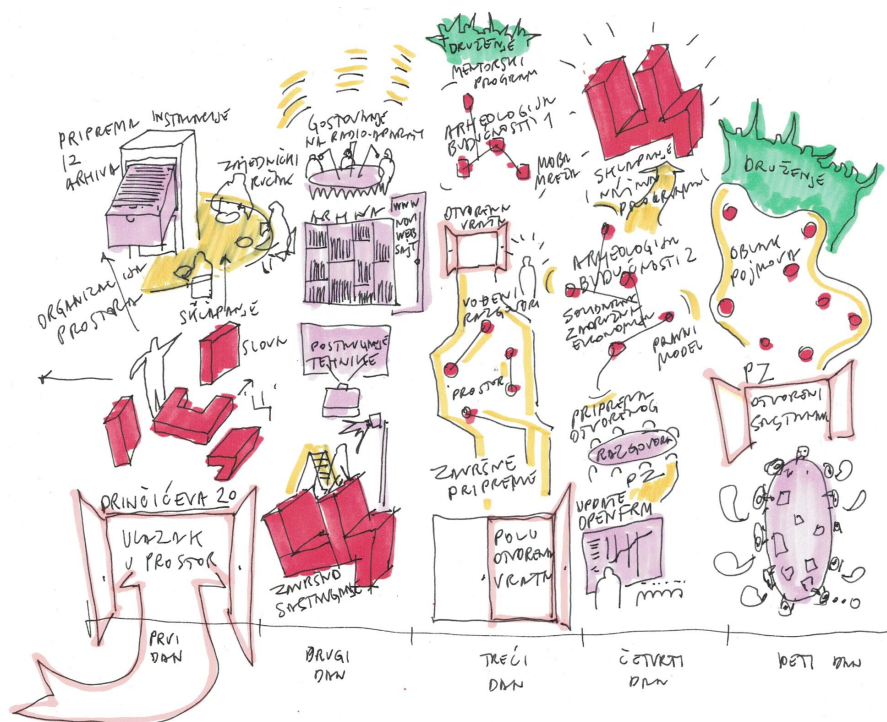 PRIPREMA INSTALACIJE
IZ
ARHIVA
ZAJEDNIČKI
RUČAK
ORGANIZACIJA
PROSTORA
SKLAPANJE
SLOVA
"Ц"
DRINČIĆEVA 20
ULAZAK
U PROSTOR
PRVI
DAN
GOSTOVANJE
NA RADIO-APARATU
ARHIVA
WWW
NOVI
WEB
SAJT
POSTAVLJANJE
TEHNIKE
ZAVRŠNO
SASTAVLJANJE
DRUGI
DAN
DRUŽENJE
MENTORSKI
PROGRAM
ARHEOLOGIJA
BUDUĆNOSTI 1
MOBA
MREŽA
OTVORENA
VRATA
VOĐENI
RAZGOVORI
PROSTOR
ZAVRŠNE
PRIPREME
POLU
OTVORENA
VRATA
TREĆI
DAN
SKLAPANJE
I NAČINI
PROGRAMI
ARHEOLOGIJA
BUDUĆNOSTI 2
SOLIDARNA
ZADRUŽNA
EKONOMIJA
PRAVNI
MODEL
PRIPREMA
OTVORENOG
RAZGOVORA
PZ
UPDATE
OPENFRM
ČETVRTI
DAN
DRUŽENJE
OBLAK
POJMOVA
PZ
OTVORENI
SASTANAK
PETI DAN